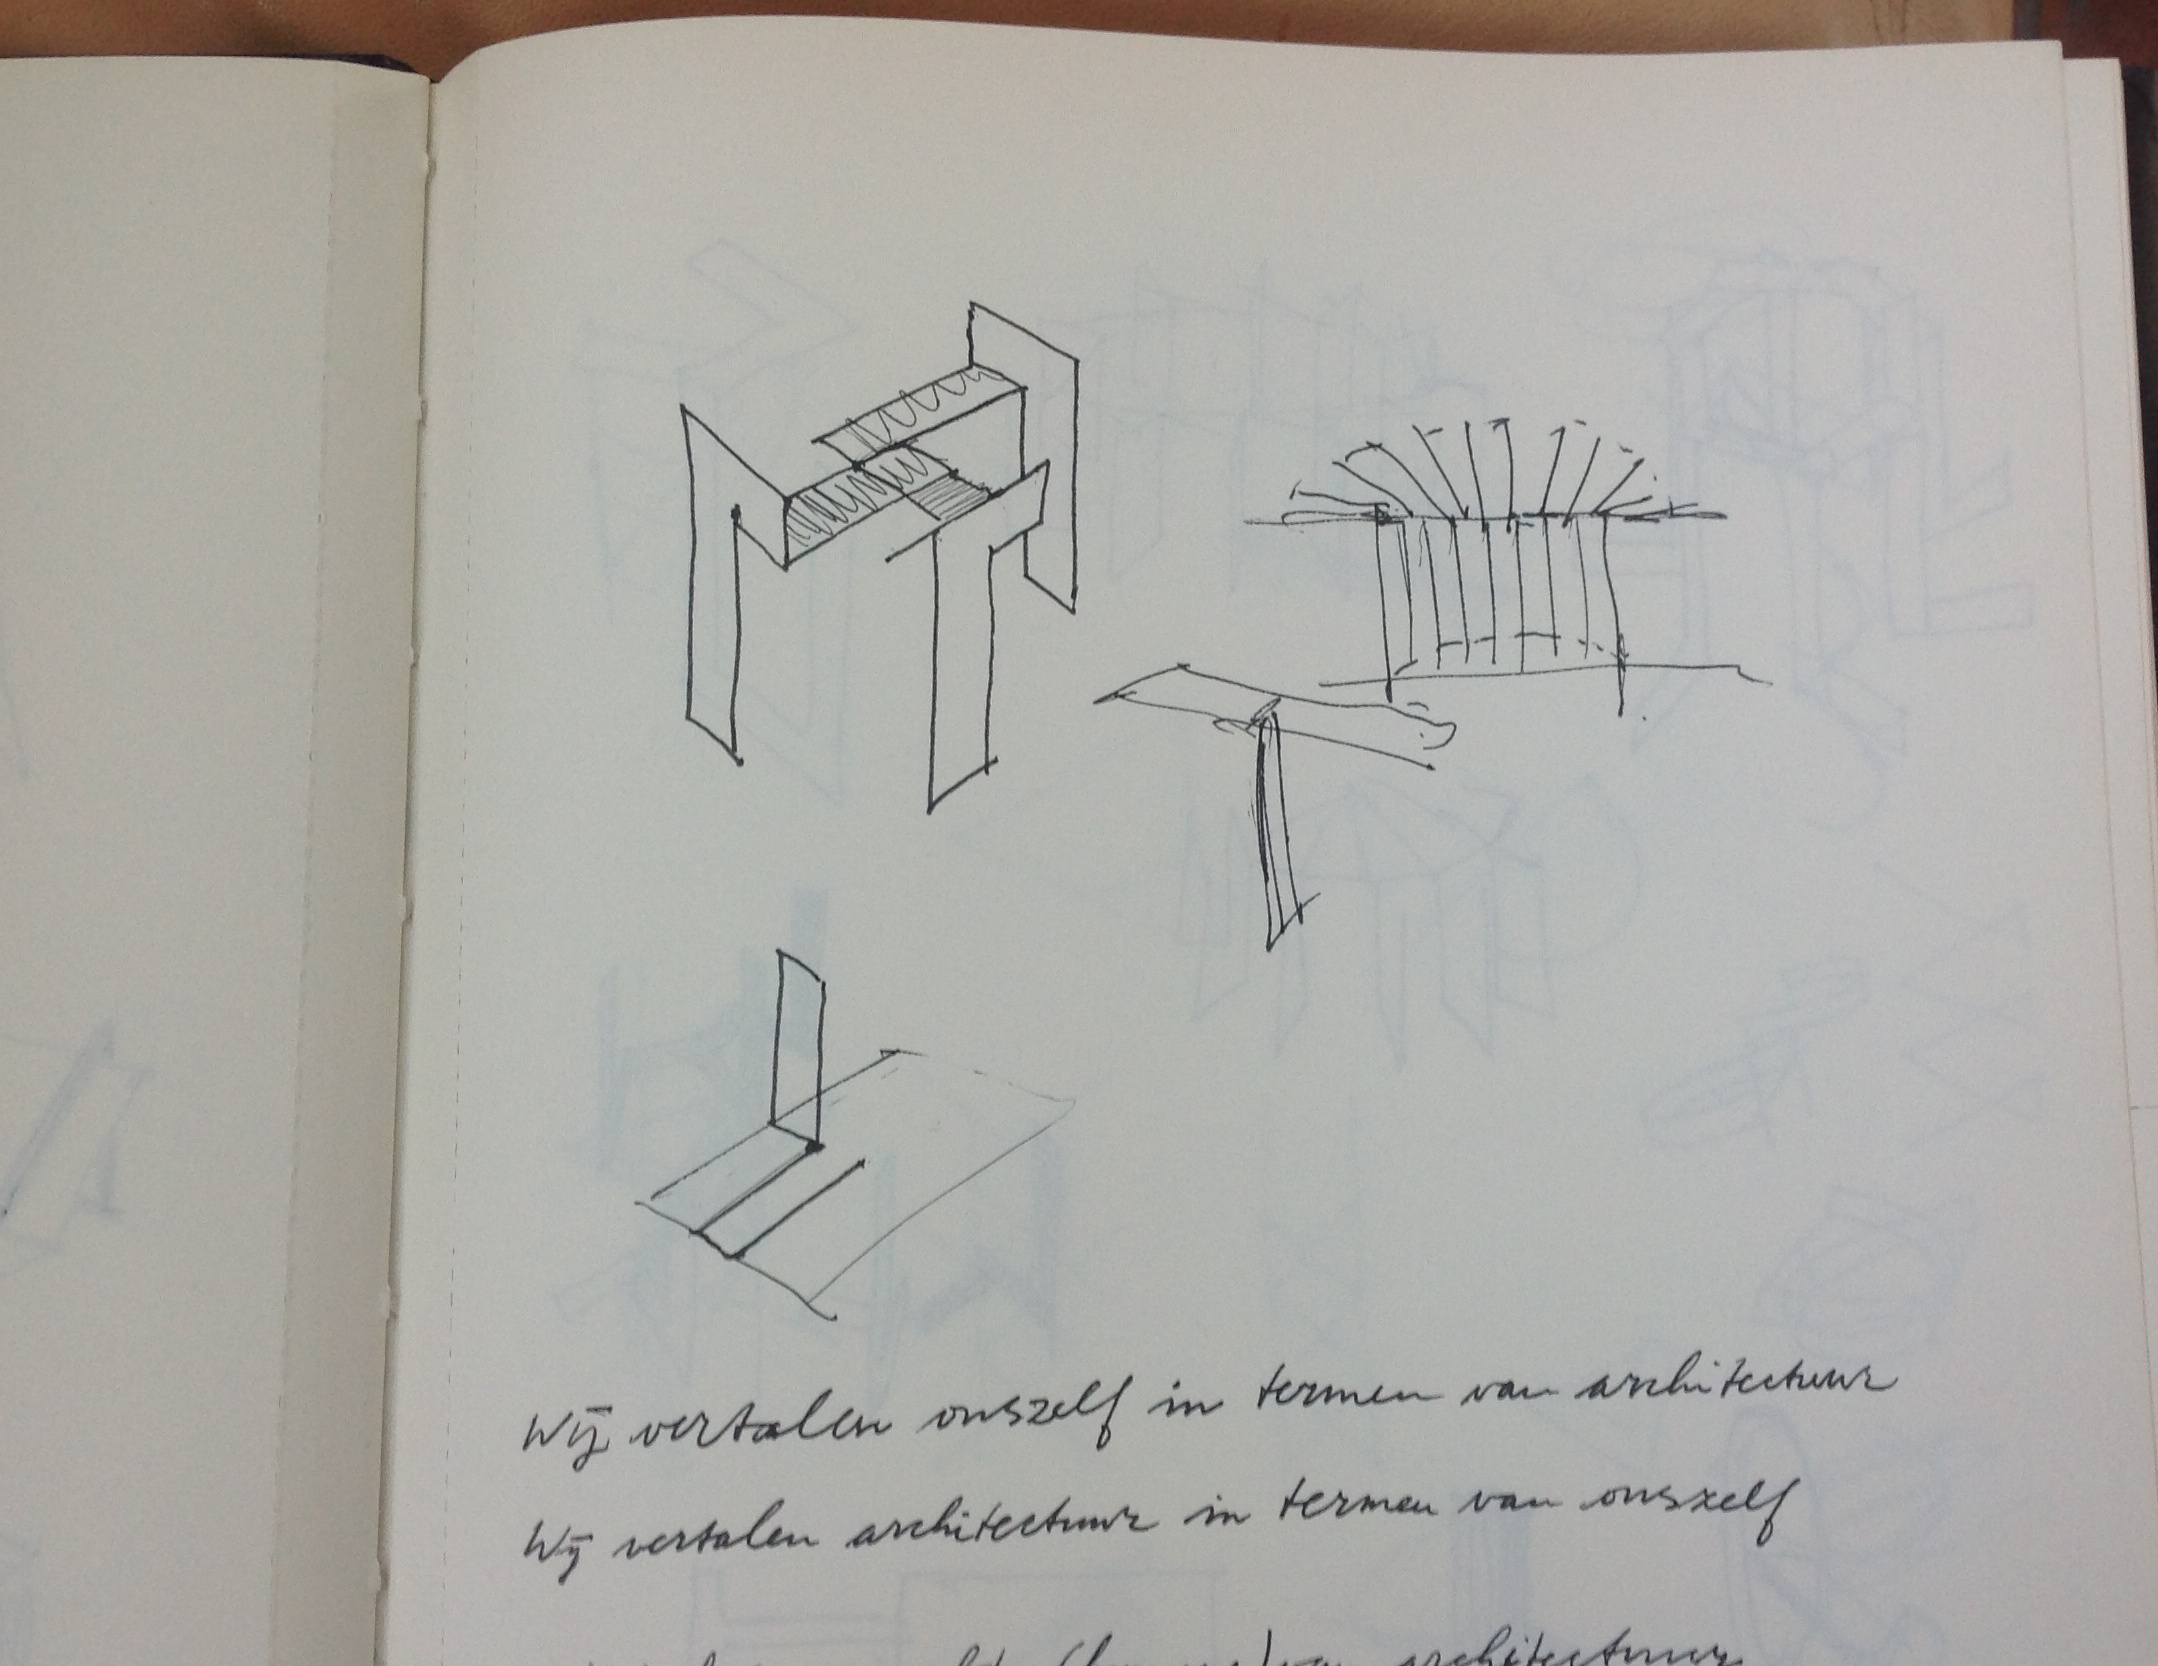 Wij vertalen onszelf in termen van architectuur
Wij vertalen architectuur in termen van onszelf
architectuur